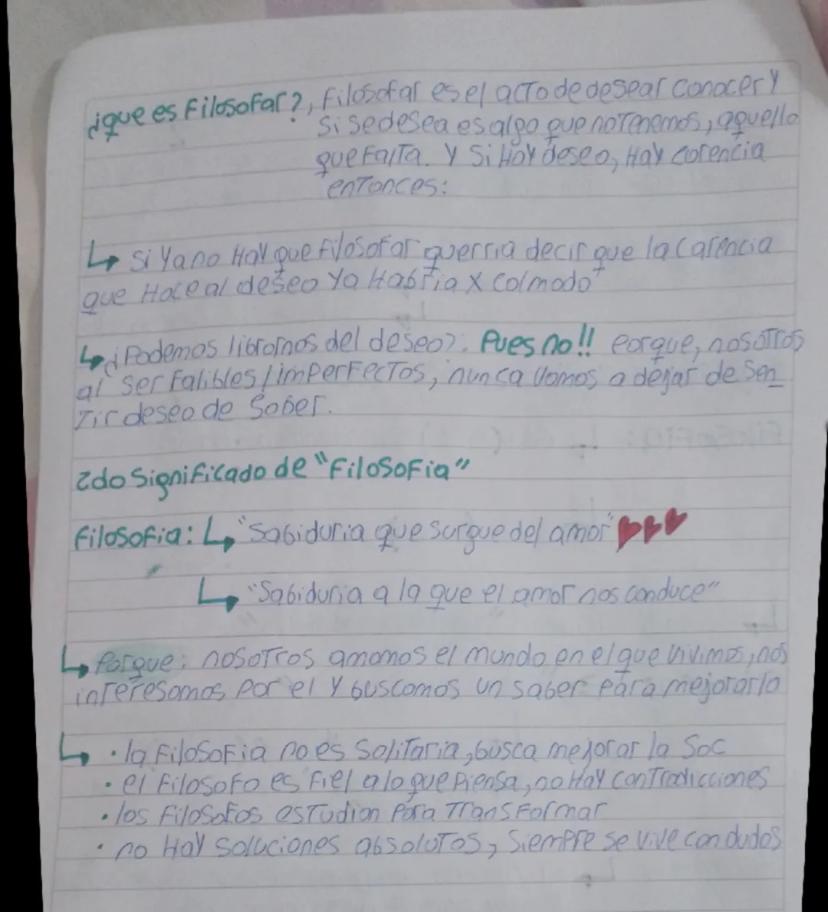 ¿que es Filosofar?, Filosofar es el acto de desear conocer y
si se desea es algo que no tenemos, aquello
que falta. Y si Hay deseo, Hay carencia
entonces:
↳ si ya no Hay que filosofar querria decir que la carencia
que Hace al deseo ya Habria x colmado
↳ ¿Podemos librarnos del deseo?. Pues no!! Porque, nosotros
al ser falibles/imperfectos, nunca vamos a dejar de sen_
tir deseo de saber.
2do Significado de "Filosofia"
Filosofia: ↳ "Sabiduria que surgue del amor"
↳ "Sabiduria a la que el amor nos conduce"
↳ Porque: nosotros amamos el mundo en el que vivimos, nos
interesamos por el y buscamos un saber para mejorarlo
↳ • la Filosofia no es solitaria, busca mejorar la Soc
• el Filosofo es fiel a lo que piensa, no Hay contradicciones
• los Filosofos estudian para transformar
• no Hay soluciones absolutas, siempre se vive con dudas